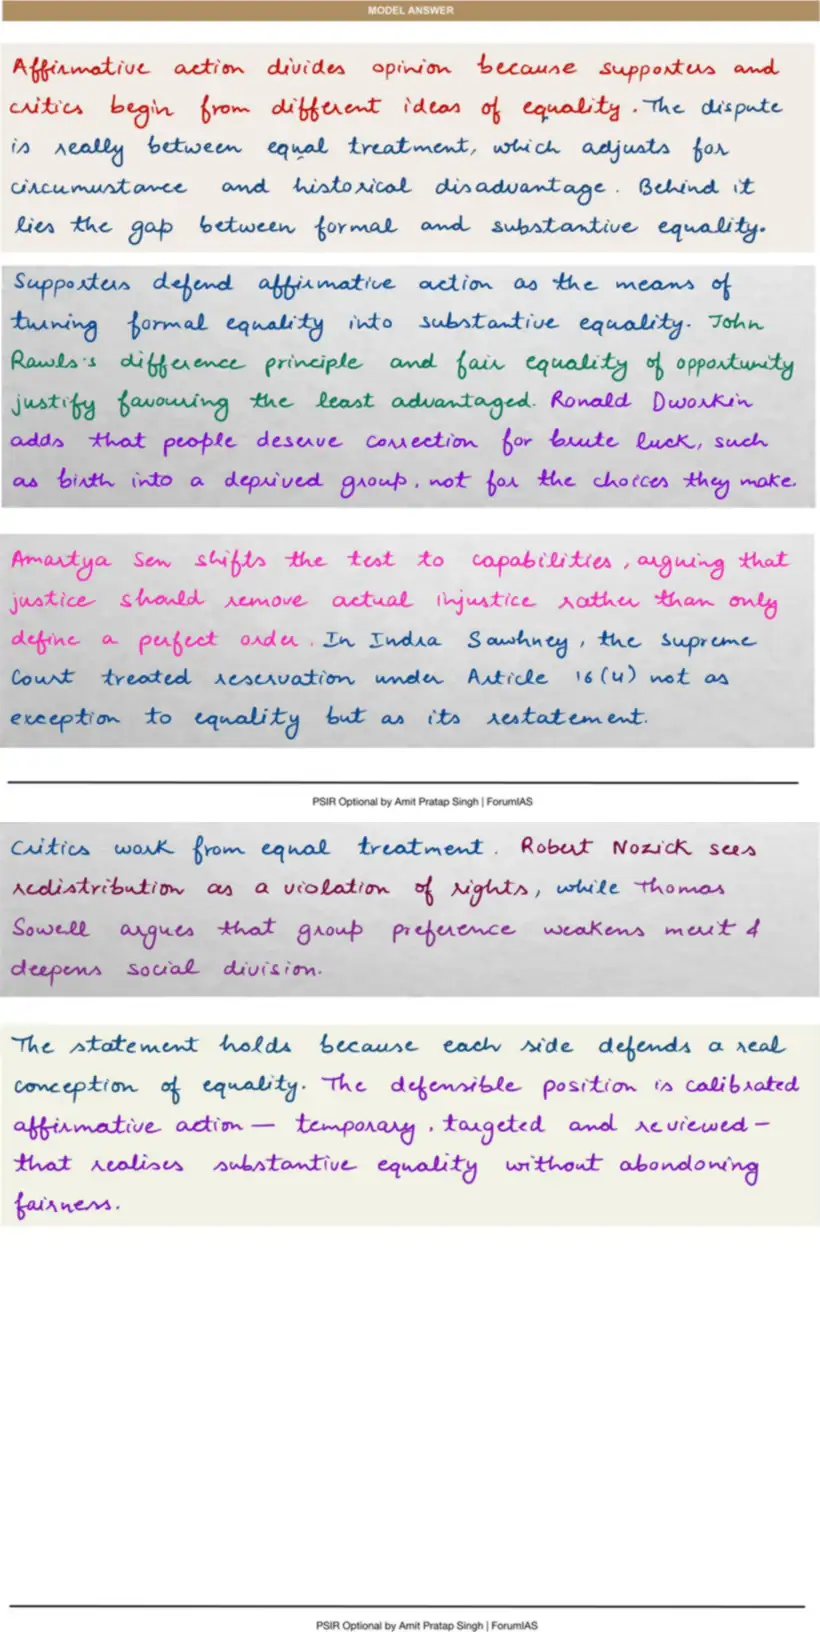 MODEL ANSWER
Affirmative action divides opinion because supporters and
critics begin from different ideas of equality. The dispute
is really between equal treatment, which adjusts for
circumustance and historical disadvantage. Behind it
lies the gap between formal and substantive equality.
Supporters defend affirmative action as the means of
turning formal equality into substantive equality. John
Rawls's difference principle and fair equality of opportunity
justify favouring the least advantaged. Ronald Dworkin
adds that people deserve correction for brute luck, such
as birth into a deprived group, not for the choices they make.
Amartya Sen shifts the test to capabilities, arguing that
justice should remove actual injustice rather than only
define a perfect order. In Indra Sawhney, the Supreme
Court treated reservation under Article 16(4) not as
exception to equality but as its restatement.
PSIR Optional by Amit Pratap Singh | ForumIAS
Critics work from equal treatment. Robert Nozick sees
redistribution as a violation of rights, while Thomas
Sowell argues that group preference weakens merit &
deepens social division.
The statement holds because each side defends a real
conception of equality. The defensible position is calibrated
affirmative action — temporary, targeted and reviewed —
that realises substantive equality without abandoning
fairness.
PSIR Optional by Amit Pratap Singh | ForumIAS